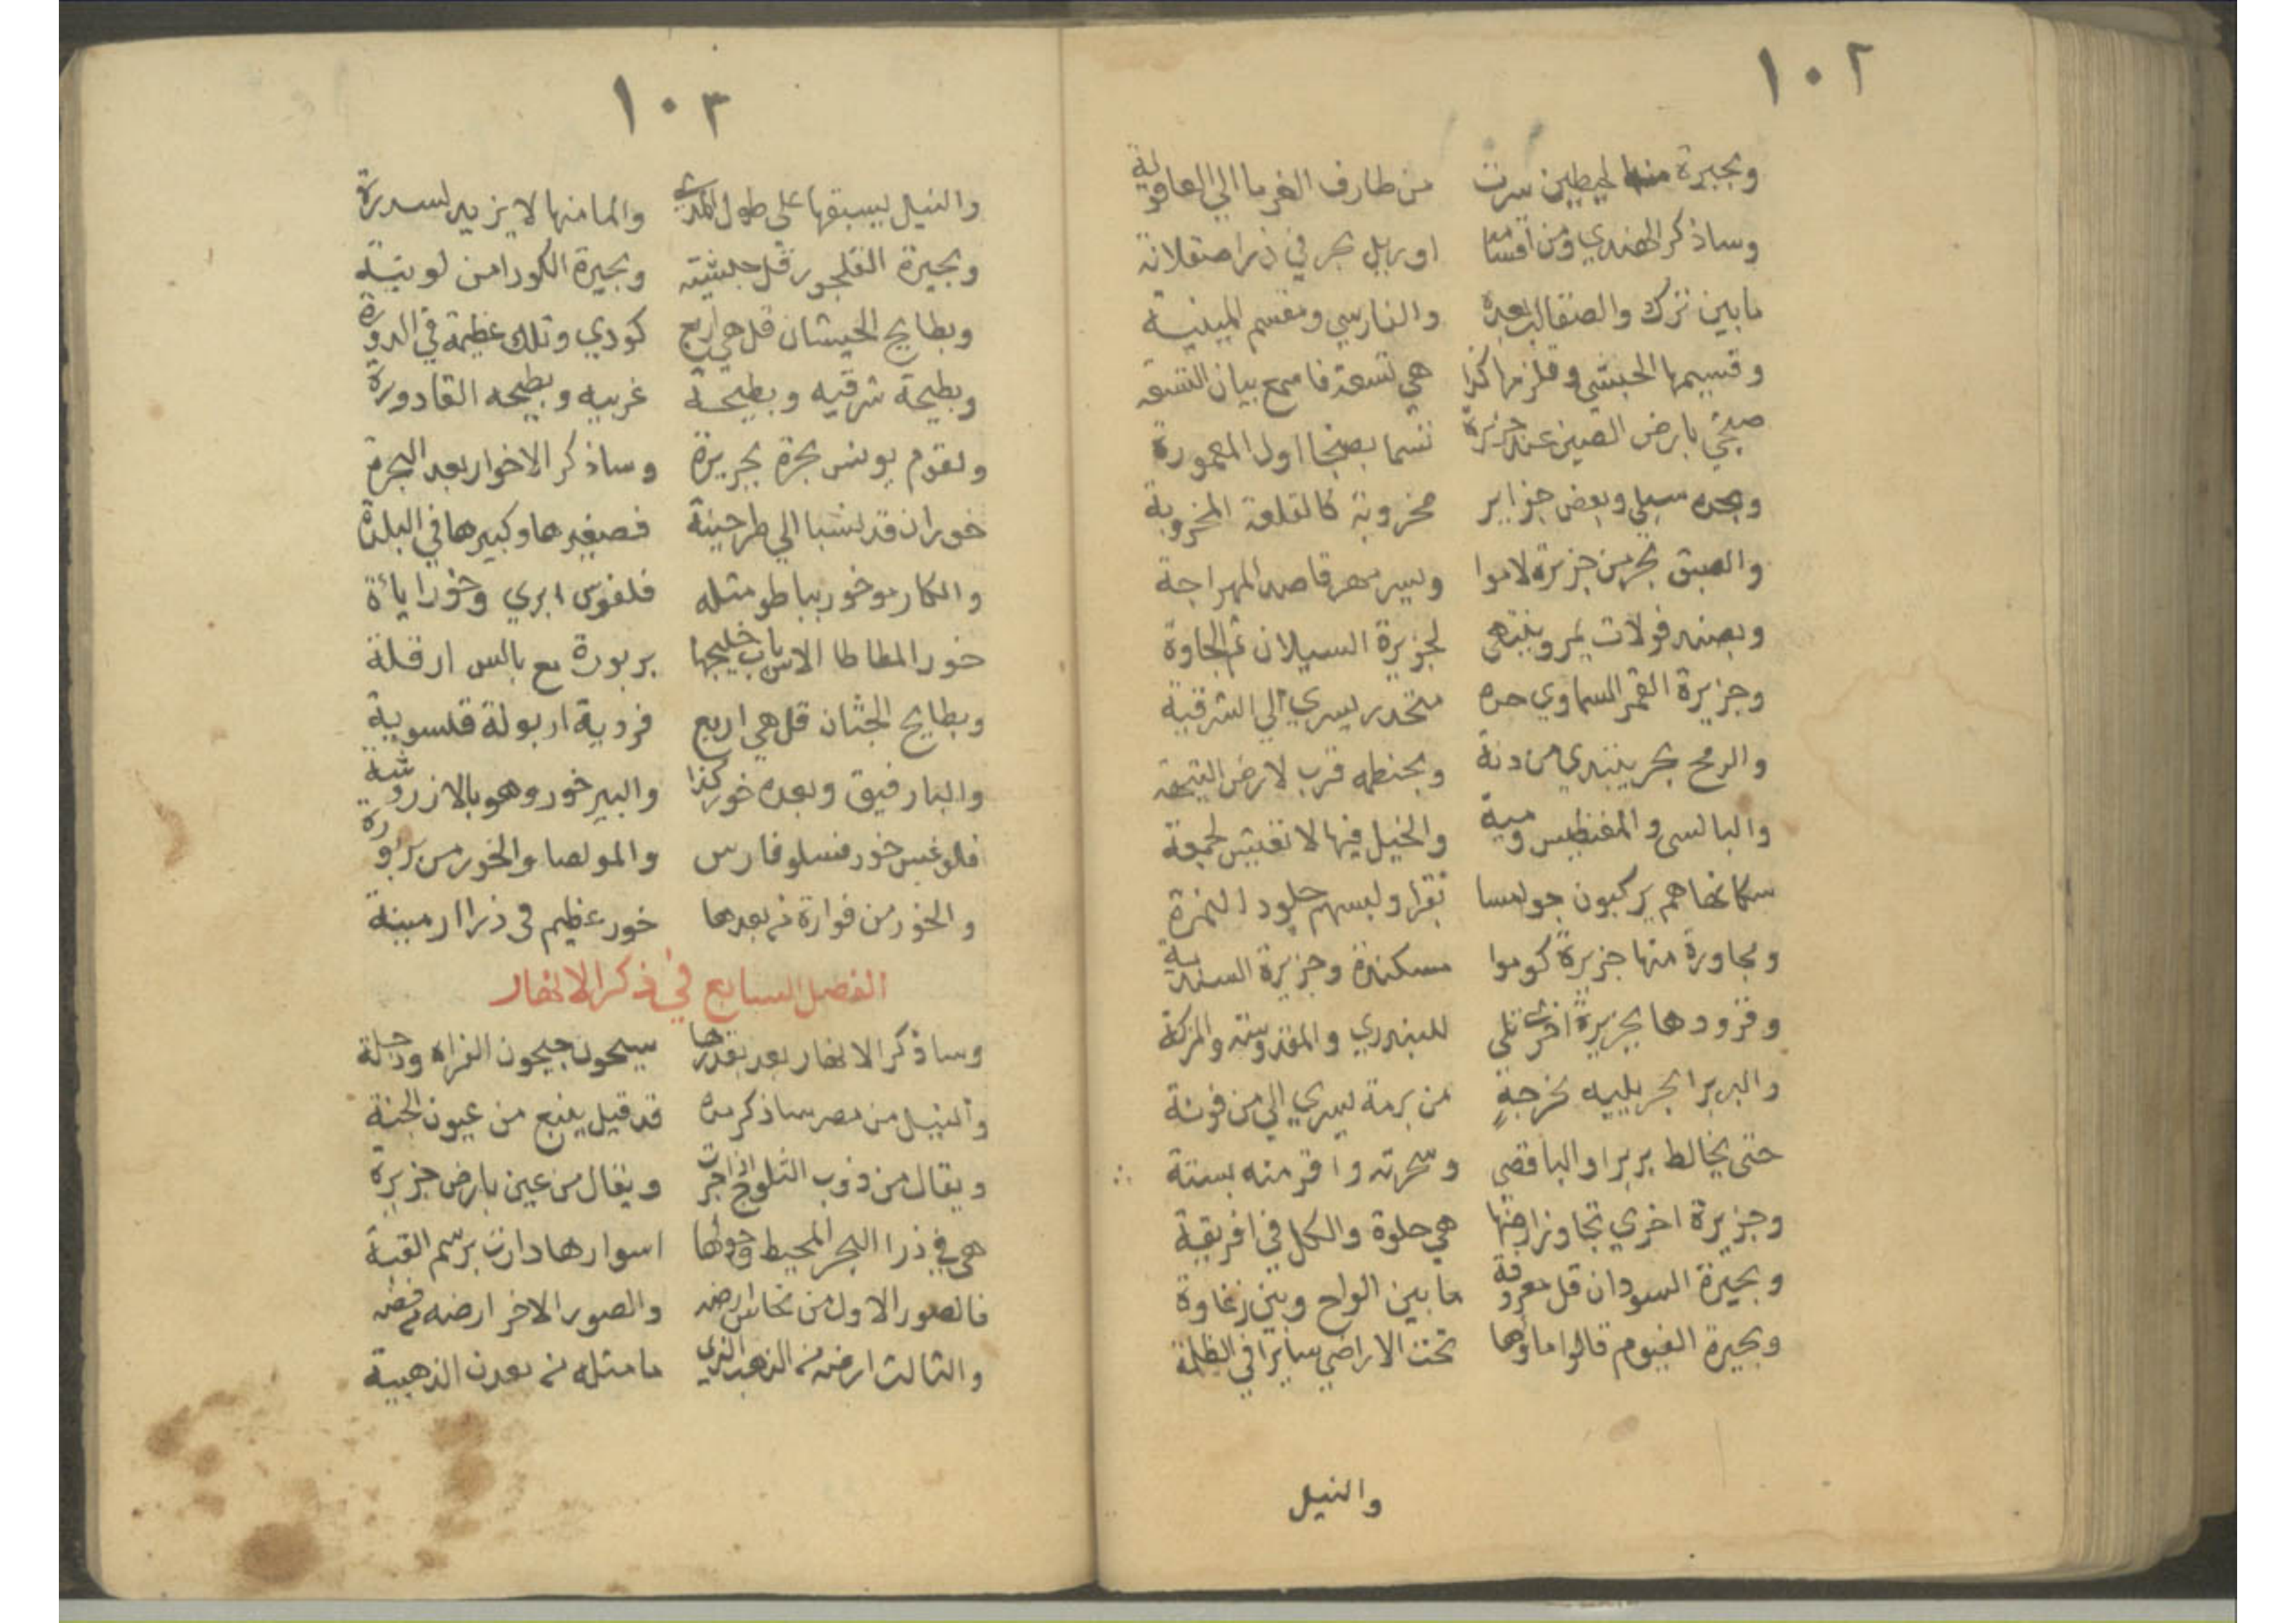 ١٠٢
وبحيرة منها لحيطين سرت من طارف الغرما الي العاقولية
وساذكر الهندي ومن اقسامه اوريل بحر في ذرا صقلانة
مابين ترك والصقالب بعده والفارسي ومقسم المينية
وقسيمها الحبشي وقلزمها كذا هي تسعة فاسمع بيان التسعه
صنجي بارض الصين عند جزيرة تسما بصنجا اول المعمورة
وبحره سيلي وبعض جزاير مخروبة كالقلعة المخروبة
والصبق بحر من جزيرة لاموا ويسير مهر قاصد المهراجة
وبصندفولات يمر وينتهى لجزيرة السيلان ثم الجاوة
وجزيرة القمر السماوي حده متحدر يسري الي الشرقية
والرمح بحر يبتدي من دنة وبحنطه قرب لارض التيحة
والبالسى والمغنطيس ومية والخيل فيها لا تعيش لجمعة
سكانها هم يركبون جواميسا بقرا ولبسهم جلود النمرة
ومجاورة منها جزيرة كوموا مسكندة وجزيرة السندية
وقزودها بجزيرة افرنتلي للبندري والمقدوسة والمركة
والبربرا بحر يليه بخرجة من برمة يسري الي من فوتة
حتى يخالط بربرا والباقصى وسخرته واقر منه بستة
وجزيرة اخري تجاوز ارضها هي حلوة والكل في افريقية
وبحيرة السودان قل معروفة مابين الواح وبين زغاوة
وبحيرة الفيوم قالوا ماؤها تحت الاراضي سايرا في الظلمة
والنيل
١٠٣
والنيل يسبقها على طول المدي والما منها لا يزيد لسدرة
وبحيرة القلجور قل حبشيته وبحيرة الكورا من لوبية
وبطايح الحبشان قل هي اربع كودي وتلك عظيمة في الدورة
وبطيحة شرقيه وبطيحة غربيه وبطيحه القادورة
ولقوم يونس بحرة بجزيرة وساذكر الاخوار بعد البحرة
خوران قد نسبا الي طرحينة فصغيرها وكبيرها في البلدة
والكارمو خور بباطو مثله فلفوس ابري وخور ايائة
خور المطاطا الاس باب خليجها بربورة مع بالس ارقلة
وبطايح الجثان قل هي اربع فردية اربولة قلسوية
والنارفيق وبعده خور كذا والبير خور وهو بالازروشة
فلوغبس خور فسلو فارس والمولصا والخور من بربورة
والخور من فوارة من بعدها خور عظيم في ذرا ارمينة
الفصل السابع في ذكر الانهار
وساذكر الانهار بعد بقدرها سيحون جيحون الفراه ودجلة
والنيل من مصر ساذكر مده قد قيل ينبع من عيون الجنة
ويقال من ذوب الثلوج اذا جرت ويقال من عين بارض جزيرة
هي في ذرا البحر المحيط وحولها اسوارها دارت برسم القبة
فالصور الاول من نحاس ارضه والصور الاخر ارضه من فضه
والثالث ارضه من الذهب الذي ما مثله من معدن الذهبية